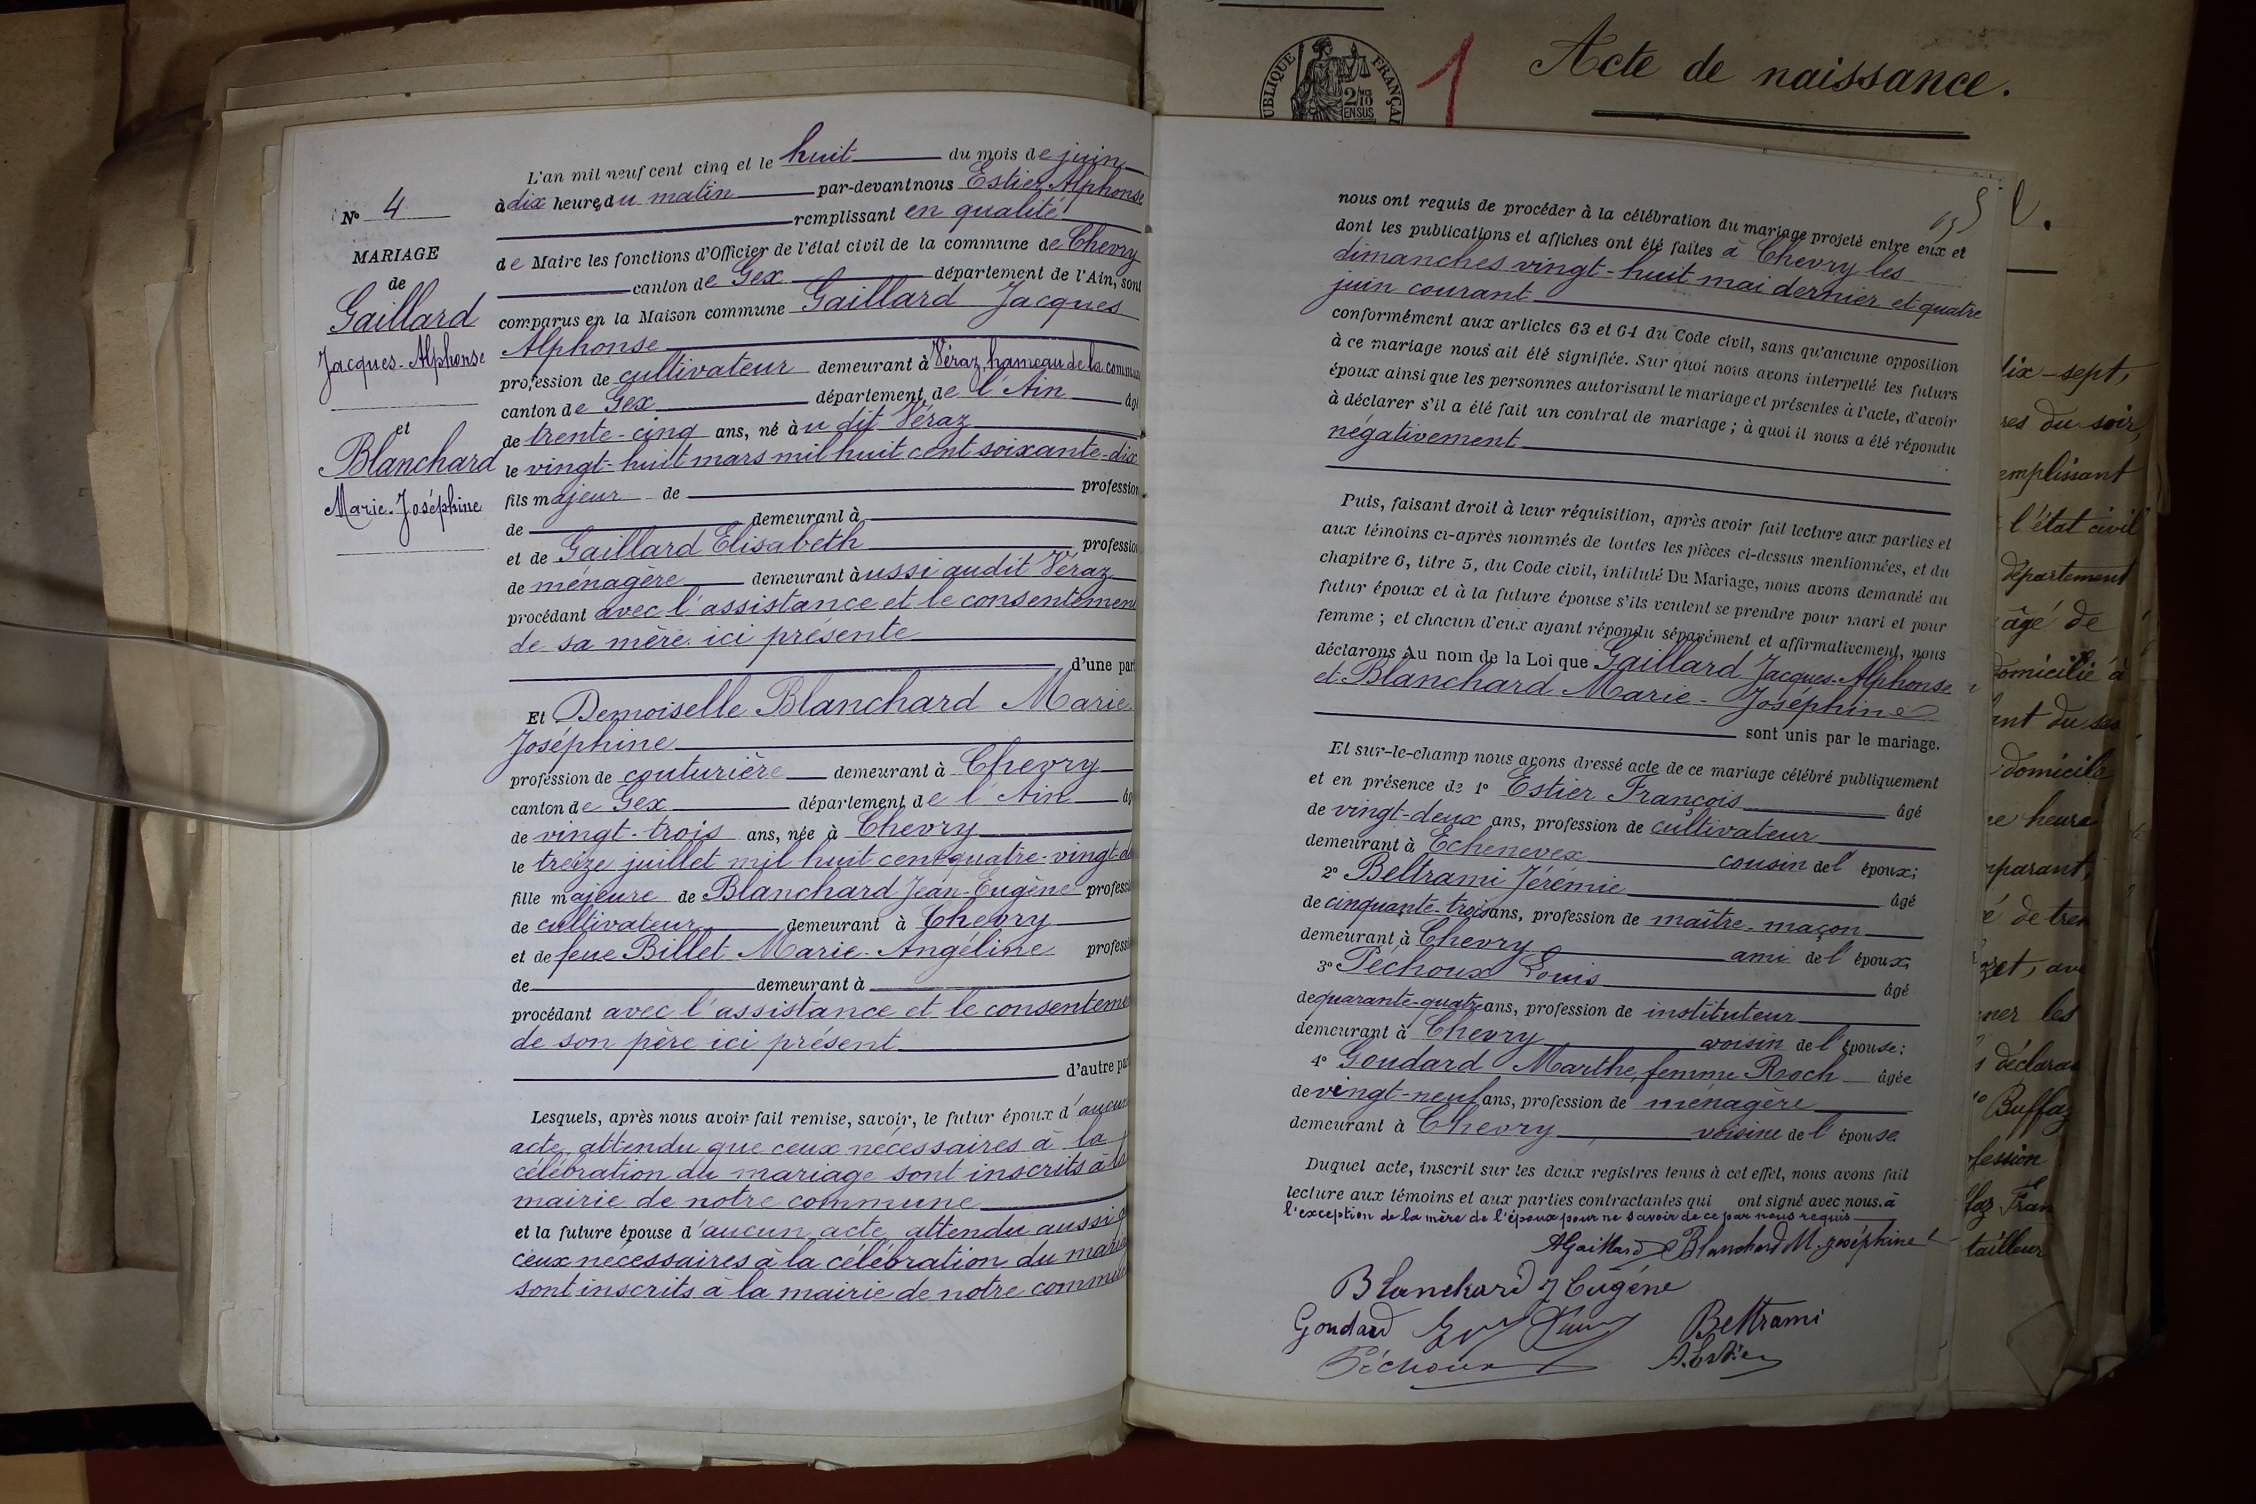 N° 4
MARIAGE
de
Gaillard
Jacques-Alphonse
et
Blanchard
Marie-Joséphine
L'an mil neuf cent cinq et le huit du mois de juin
à dix heures du matin par-devant nous Estier Alphonse
remplissant en qualité
de Maire les fonctions d'Officier de l'état civil de la commune de Chevry
canton de Gex département de l'Ain, sont
comparus en la Maison commune Gaillard Jacques
Alphonse
profession de cultivateur demeurant à Véraz, hameau de la commune
canton de Gex département de l'Ain âgé
de trente-cinq ans, né au dit Véraz
le vingt-huit mars mil huit cent soixante-dix
fils majeur de profession
de demeurant à
et de Gaillard Elisabeth profession
de ménagère demeurant aussi audit Véraz
procédant avec l'assistance et le consentement
de sa mère ici présente
d'une part
Et Demoiselle Blanchard Marie
Joséphine
profession de couturière demeurant à Chevry
canton de Gex département de l'Ain âg
de vingt-trois ans, née à Chevry
le treize juillet mil huit cent quatre-vingt-d
fille majeure de Blanchard Jean-Eugène profess
de cultivateur demeurant à Chevry
et de feue Billet Marie-Angéline profess
de demeurant à
procédant avec l'assistance et le consenteme
de son père ici présent
d'autre pa
Lesquels, après nous avoir fait remise, savoir, le futur époux d'aucun
acte, attendu que ceux nécessaires à la
célébration du mariage sont inscrits à la
mairie de notre commune
et la future épouse d'aucun acte, attendu aussi q
ceux nécessaires à la célébration du maria
sont inscrits à la mairie de notre commun
nous ont requis de procéder à la célébration du mariage projeté entre eux et
dont les publications et affiches ont été faites à Chevry les
dimanches vingt-huit mai dernier et quatre
juin courant
conformément aux articles 63 et 64 du Code civil, sans qu'aucune opposition
à ce mariage nous ait été signifiée. Sur quoi nous avons interpellé les futurs
époux ainsi que les personnes autorisant le mariage et présentes à l'acte, d'avoir
à déclarer s'il a été fait un contrat de mariage ; à quoi il nous a été répondu
négativement
Puis, faisant droit à leur réquisition, après avoir fait lecture aux parties et
aux témoins ci-après nommés de toutes les pièces ci-dessus mentionnées, et du
chapitre 6, titre 5, du Code civil, intitulé Du Mariage, nous avons demandé au
futur époux et à la future épouse s'ils veulent se prendre pour mari et pour
femme ; et chacun d'eux ayant répondu séparément et affirmativement, nous
déclarons Au nom de la Loi que Gaillard Jacques-Alphonse
et Blanchard Marie-Joséphine
sont unis par le mariage.
Et sur-le-champ nous avons dressé acte de ce mariage célébré publiquement
et en présence de 1° Estier François âgé
de vingt-deux ans, profession de cultivateur
demeurant à Echenevex cousin de l'époux ;
2° Beltrami Jérémie âgé
de cinquante-trois ans, profession de maître-maçon
demeurant à Chevry ami de l'époux ;
3° Péchoux Louis âgé
de quarante-quatre ans, profession de instituteur
demeurant à Chevry voisin de l'épouse ;
4° Goudard Marthe, femme Roch âgée
de vingt-neuf ans, profession de ménagère
demeurant à Chevry voisine de l'épouse
Duquel acte, inscrit sur les deux registres tenus à cet effet, nous avons fait
lecture aux témoins et aux parties contractantes qui ont signé avec nous, à
l'exception de la mère de l'époux pour ne savoir de ce par nous requis
AGaillard Blanchard M. Joséphine
Blanchard J Eugène
Goudard Beltrami
Péchoux A. Estier
UBLIQUE FRANÇAI
2/10
EN SUS
1
Acte de naissance.
dix-sept,
res du soir,
emplissant
l'état civil
département
âgé de
domicilié à
domicile
ne heure
mparant,
ner les
s déclaran
Buffaz
fession
tailleur